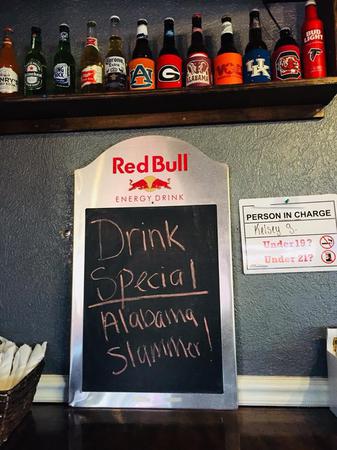 HENRY'S
Heineken
Corona
Extra
A
G
ALABAMA
UK
BUD
LIGHT
Red Bull
ENERGY DRINK
Drink
Special
Alabama
Slammer!
PERSON IN CHARGE
Kelsey S.
Under 19?
Under 21?